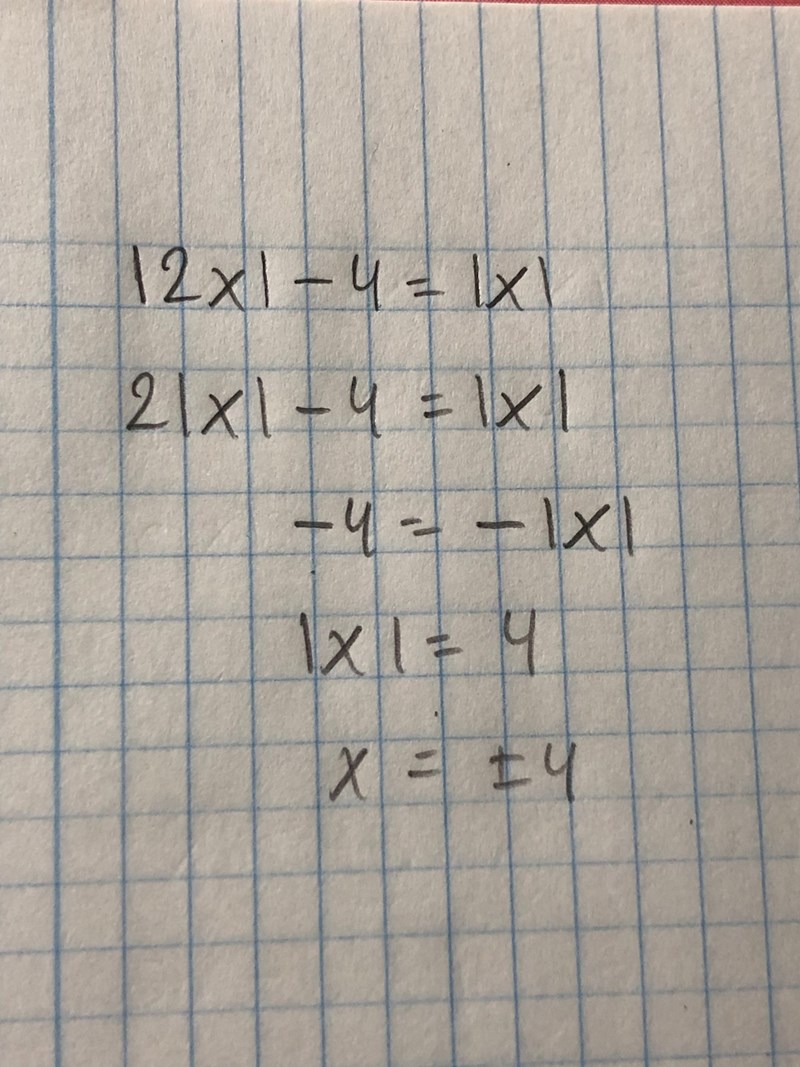 |2x| - 4 = |x|
2|x| - 4 = |x|
-4 = -|x|
|x| = 4
x = ±4